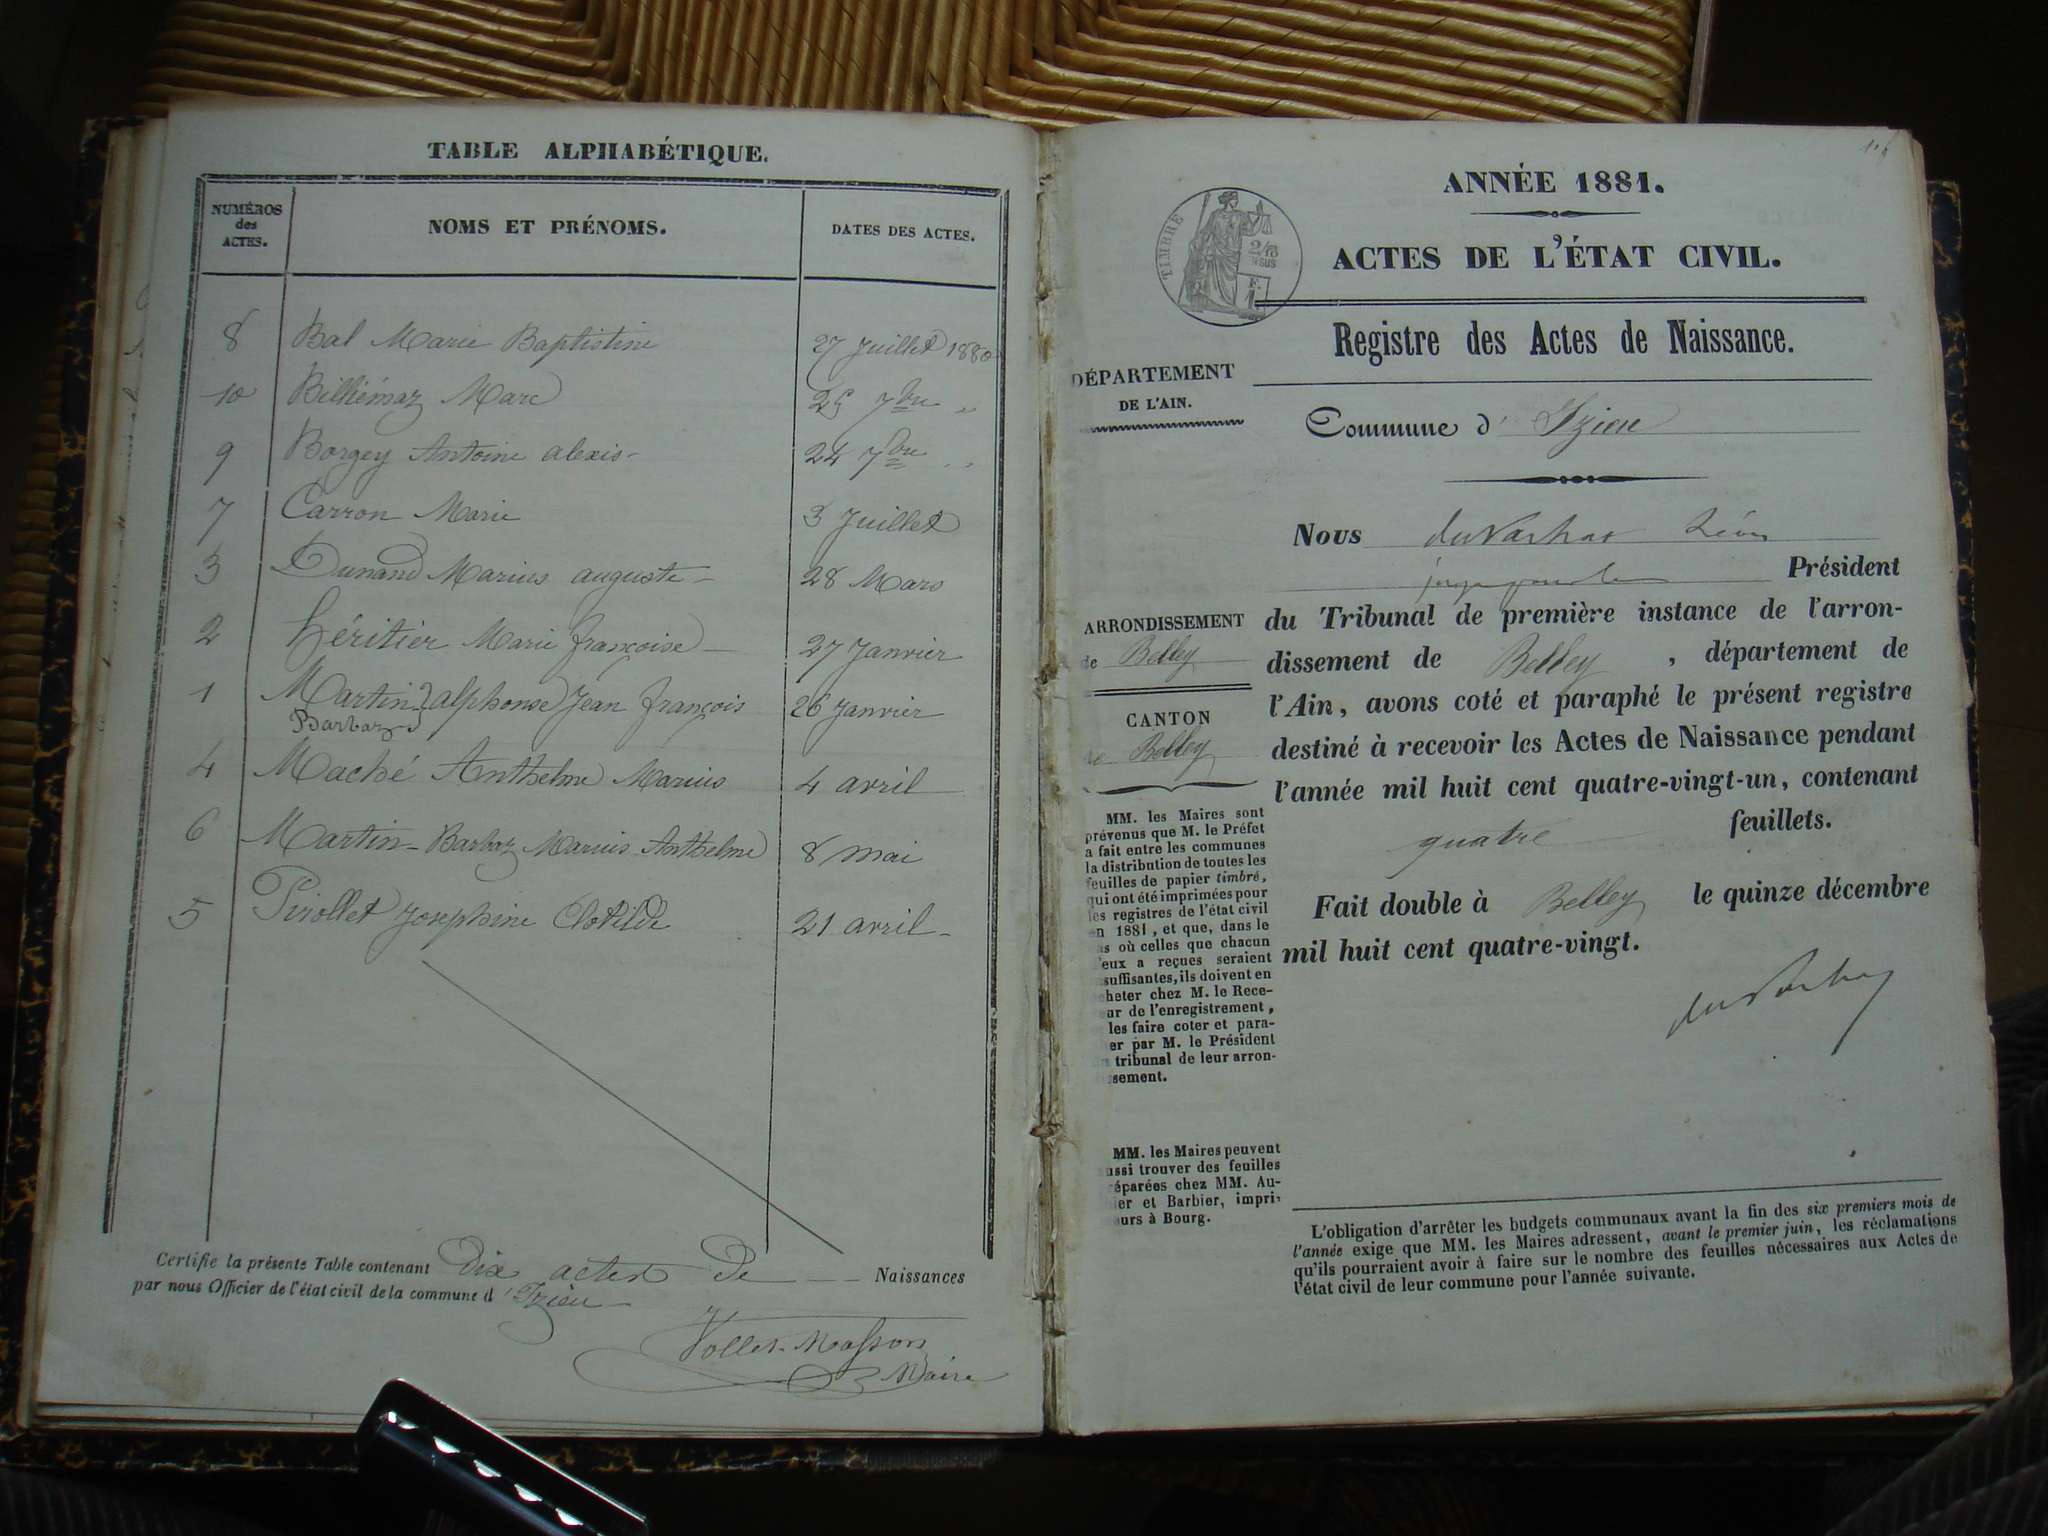 TABLE ALPHABÉTIQUE.
NUMÉROS des ACTES.
NOMS ET PRÉNOMS.
DATES DES ACTES.
8 Bal Marie Baptistine 27 Juillet 1880
10 Billiémaz Marc 25 7bre "
9 Borgey Antoine alexis - 24 7bre "
7 Carron Marie 3 Juillet
3 Dunand Marius auguste - 28 Mars
2 héritier Marie françoise - 27 Janvier
1 Martin alphonse Jean françois 26 Janvier
Barbaz
4 Maché Anthelme Marius 4 avril
6 Martin-Barbaz Marius Anthelme 8 mai
5 Pirollet Josephine Clotilde 21 avril -
Certifie la présente Table contenant Dix actes de Naissances
par nous Officier de l'état civil de la commune d'Izieu
Vollet-Masson
Maire
ANNÉE 1881.
TIMBRE
ACTES DE L'ÉTAT CIVIL.
Registre des Actes de Naissance.
DÉPARTEMENT
DE L'AIN.
Commune d' Izieu
Nous
Président
ARRONDISSEMENT
de Belley
CANTON
de Belley
du Tribunal de première instance de l'arron-
dissement de Belley, département de
l'Ain, avons coté et paraphé le présent registre
destiné à recevoir les Actes de Naissance pendant
l'année mil huit cent quatre-vingt-un, contenant
quatre feuillets.
Fait double à Belley le quinze décembre
mil huit cent quatre-vingt.
MM. les Maires sont
prévenus que M. le Préfet
a fait entre les communes
la distribution de toutes les
feuilles de papier timbré,
qui ont été imprimées pour
les registres de l'état civil
en 1881, et que, dans le
as où celles que chacun
'eux a reçues seraient
suffisantes, ils doivent en
heter chez M. le Rece-
ur de l'enregistrement,
les faire coter et para-
er par M. le Président
tribunal de leur arron-
sement.
MM. les Maires peuvent
ussi trouver des feuilles
éparées chez MM. Au-
er et Barbier, impri-
eurs à Bourg.
L'obligation d'arrêter les budgets communaux avant la fin des six premiers mois de
l'année exige que MM. les Maires adressent, avant le premier juin, les réclamations
qu'ils pourraient avoir à faire sur le nombre des feuilles nécessaires aux Actes de
l'état civil de leur commune pour l'année suivante.